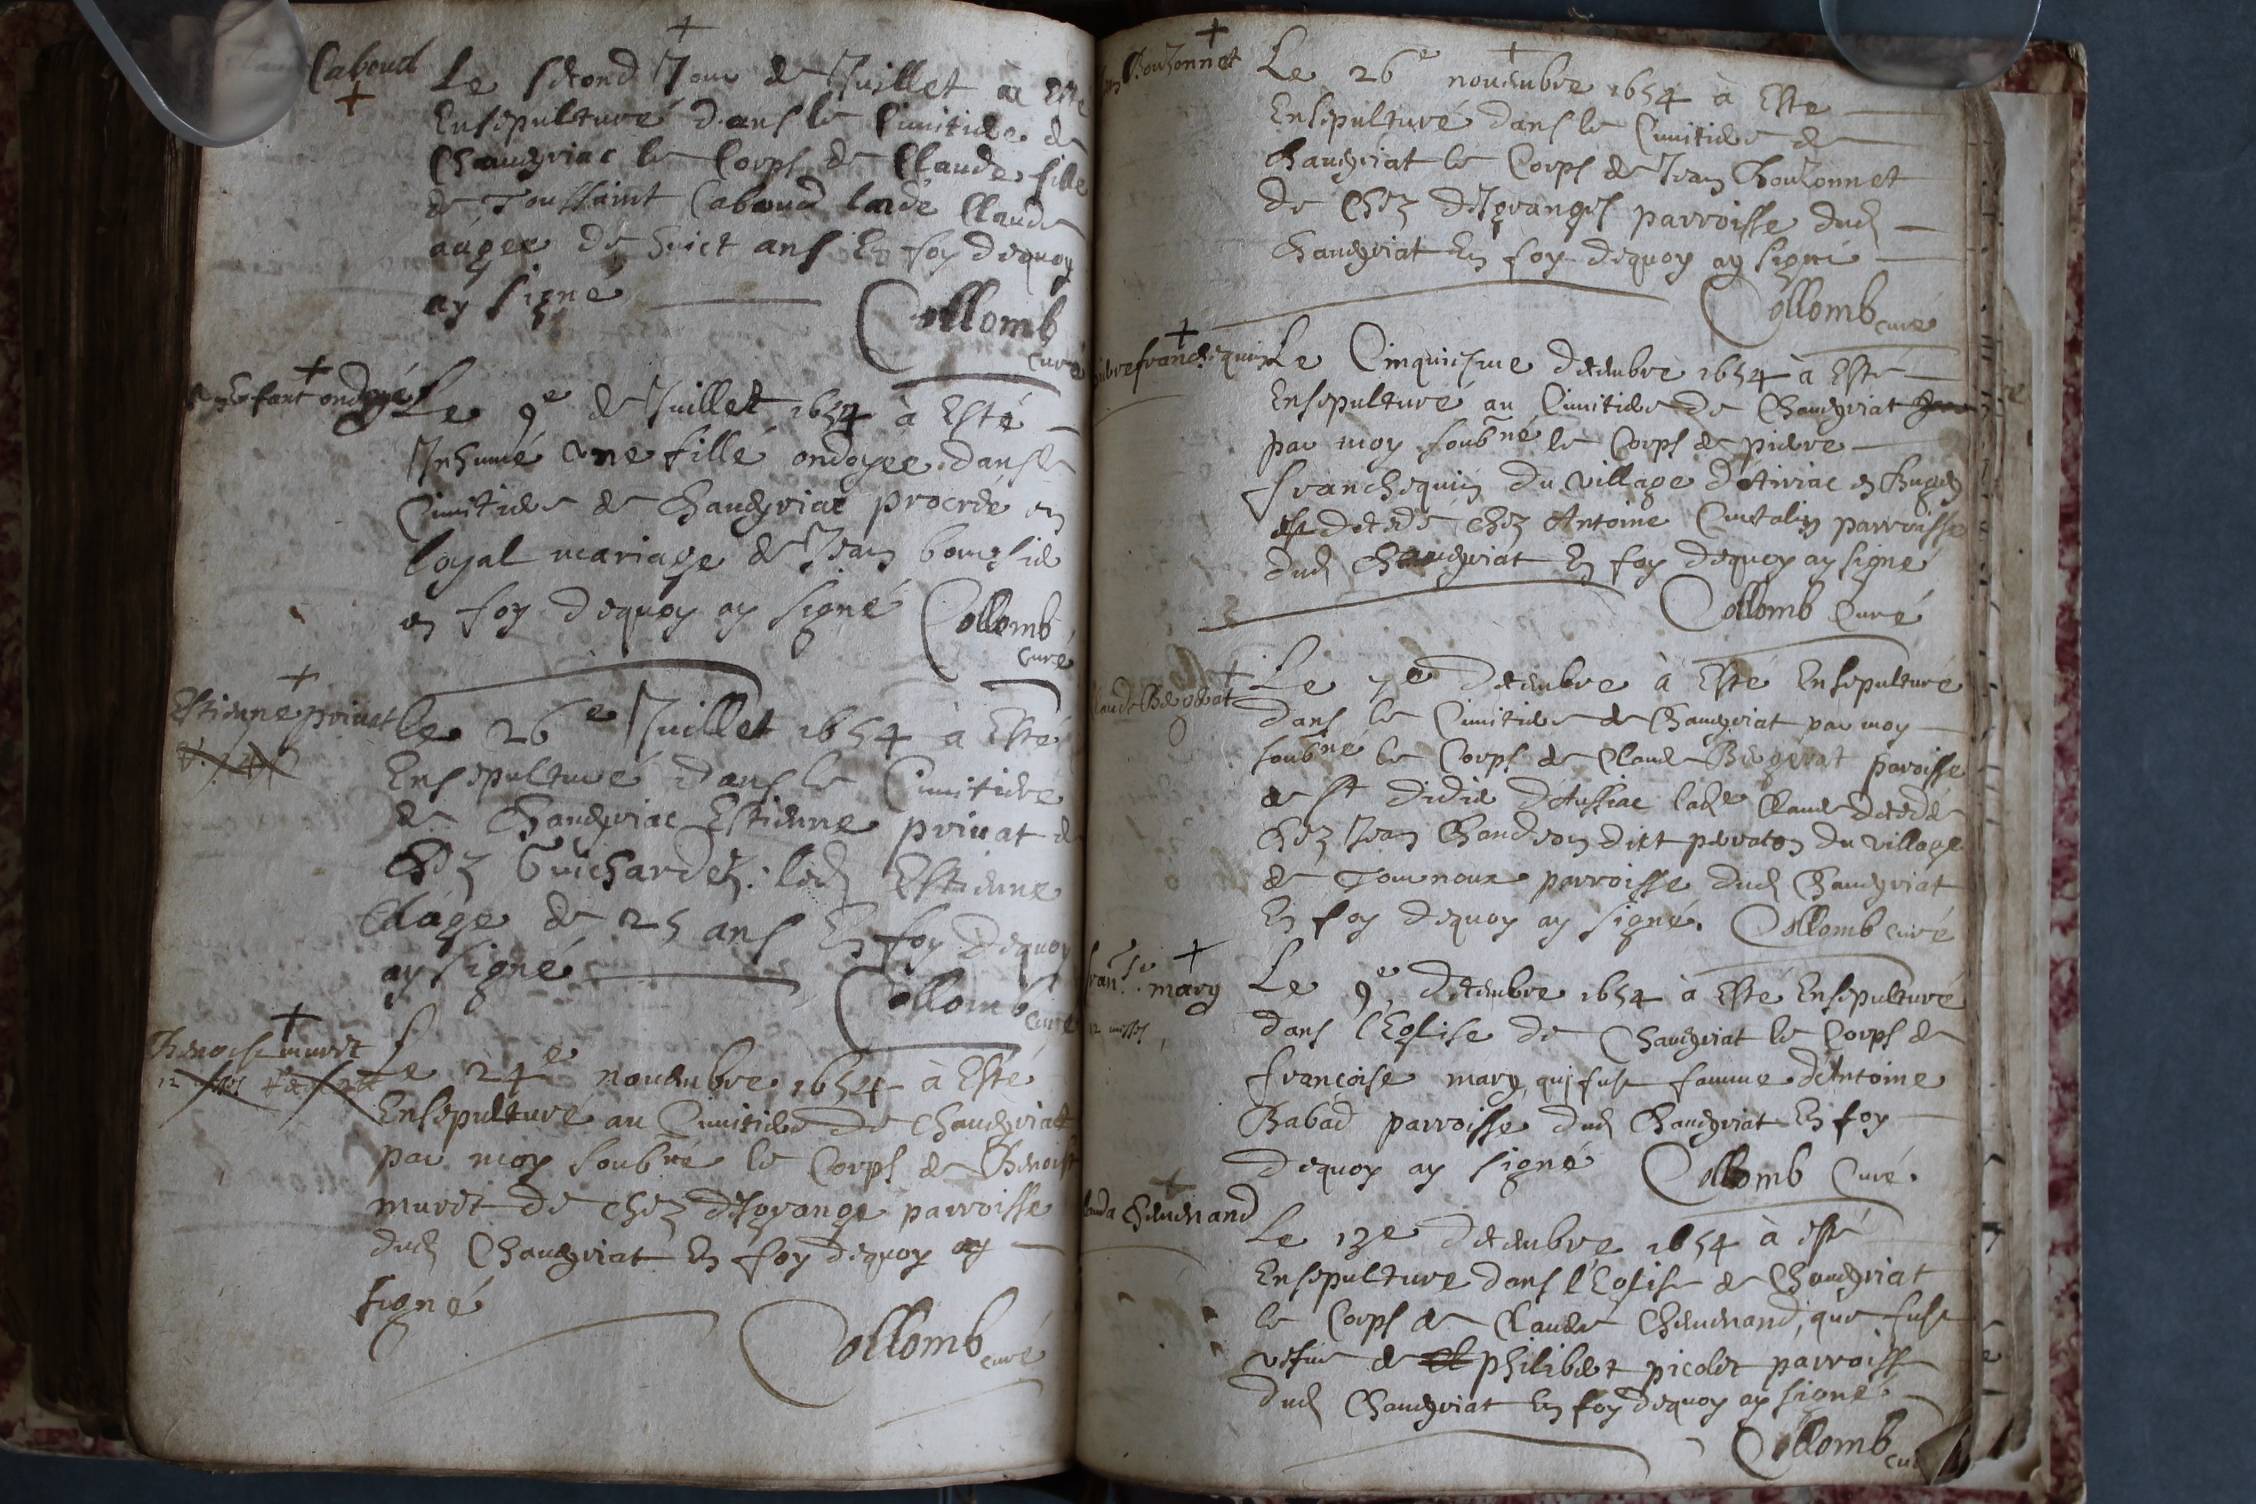 Caboud
Le second Jour de Juillet a Esté
Ensepulturé dans le Cimitiere de
Chaveyriac le Corps de Claude fille
de Toussaint Caboud lade Claude
augee de huict ans En foy dequoy
ay signé
Collomb
curé
Enfant ondoyé
Le 9e de Juillet 1654 à Esté
Inhumé une fille ondoyee dans le
Cimitiere de Chaveyriac procréé en
loyal mariage de Jean
en foy dequoy ay signé Collomb
curé
Estienne privat
Le 26e Juillet 1654 à Esté
Ensepulturé dans le Cimitiere
de Chaveyriac Estienne privat de
Chez Guichardez: led Estienne
éage de 25 ans En foy dequoy
ay signé
Collomb curé
Benoist muret
Le 24e novembre 1654 à Esté
Ensepulturé au Cimitiere de Chaveyriat
par moy soubné le Corps de Benoist
muret de chez desgrange parroisse
dud Chaveyriat En foy dequoy ay
signé
Collomb curé
Jean Bouzonnet
Le 26e novembre 1654 à Esté
Ensepulturé dans le Cimitiere de
Chaveyriat le Corps de Jean Bouzonnet
de Chez desgranges parroisse dud
Chaveyriat En foy dequoy ay signé
Collomb curé
pierre franchequin
Le Cinquiesme decembre 1654 à Esté
Ensepulturé au Cimitiere de Chaveyriat
par moy soubné le Corps de pierre
franchequin du village en Bugey
decedé chez Antoine parroisse
dud Chaveyriat En foy dequoy ay signé
Collomb Curé
Claude Bergerat
Le 7e decembre à Esté Ensepulturé
dans le Cimitiere de Chaveyriat par moy
soubné le Corps de Claude Bergerat paroisse
de st didier d'Aussiac lad Claude decedé
chez Jean Chaudron dict perraton du village
de Tournoux parroisse dud Chaveyriat
En foy dequoy ay signé. Collomb curé
franse mary
12 messes
Le 9e decembre 1654 à Esté Ensepulturé
dans l'Eglise de Chaveyriat le Corps de
françoise mary qui fust famme d'Antoine
Babad parroisse dud Chaveyriat En foy
dequoy ay signé Collomb Curé.
Clauda Chevenand
Le 13e decembre 1654 à esté
Ensepulturé dans l'Eglise de Chaveyriat
le Corps de Claude Chevenand, que fust
vefve de philibert picolet parroisse
dud Chaveyriat En foy dequoy ay signé
Collomb curé